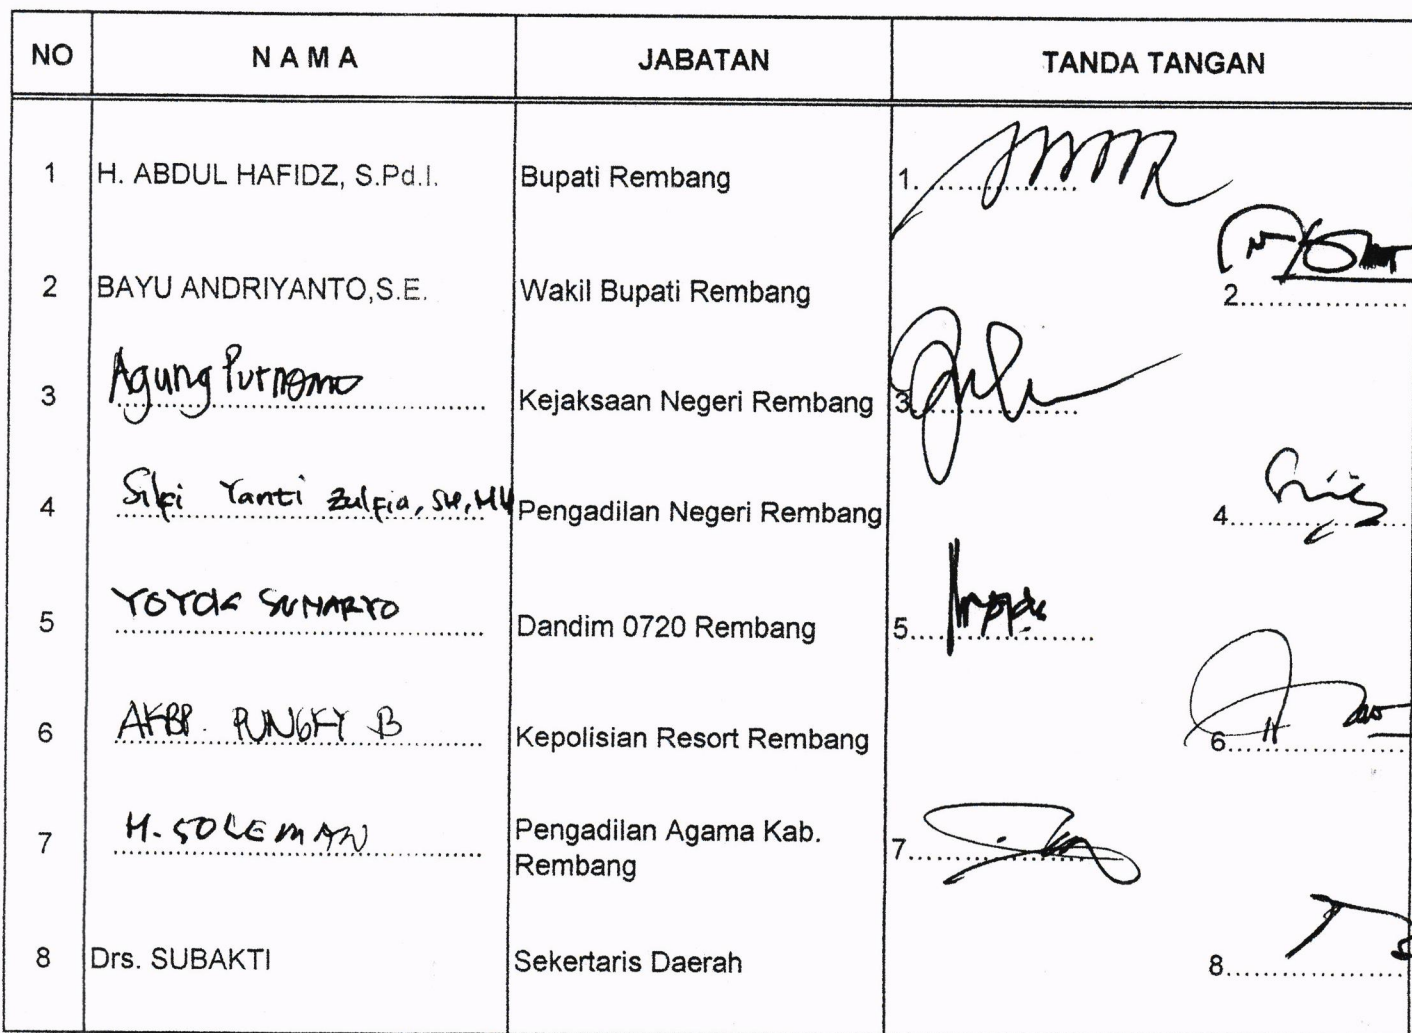 NO NAMA JABATAN TANDA TANGAN
1 H. ABDUL HAFIDZ, S.Pd.I. Bupati Rembang 1..............
2 BAYU ANDRIYANTO,S.E. Wakil Bupati Rembang 2..............
3 Agung Purnomo Kejaksaan Negeri Rembang 3..............
4 Silfi Yanti Zulfia, SH, MH Pengadilan Negeri Rembang 4..............
5 YOYOK SUMARYO Dandim 0720 Rembang 5..............
6 AKBP. PUNGKY B Kepolisian Resort Rembang 6..............
7 H. SOLEMAN Pengadilan Agama Kab.
Rembang 7..............
8 Drs. SUBAKTI Sekertaris Daerah 8..............